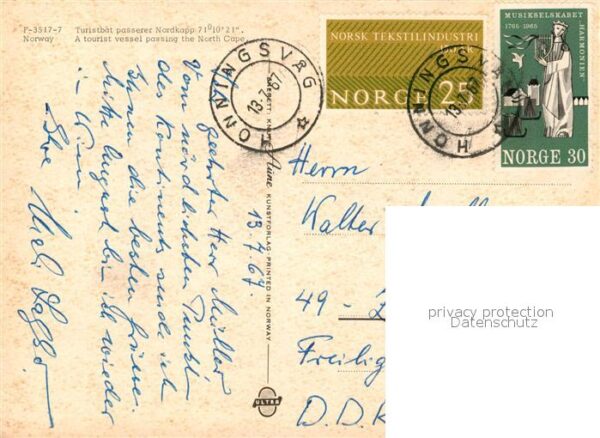 P-3517-7 Turistbåt passerer Nordkapp 71°10'21".
Norway A tourist vessel passing the North Cape.
HONNINGSVÅG
13.7.67
NORSK TEKSTILINDUSTRI
150 ÅR
NORGE 25
HONNINGSVÅG
13.7.67
MUSIKSELSKABET
1765-1965
HARMONIEN
NORGE 30
Sehr geehrter Herr Müller
Vom nördlichsten Punkt
des Kontinents sende ich
Ihnen die besten Grüsse.
Mitte August bin ich wieder
in Wien.
Ihre
13.7.67
Aune KUNSTFORLAG - PRINTED IN NORWAY
ULTRA
Herrn
Walter
49 -
Freilig
D.D.R
privacy protection
Datenschutz